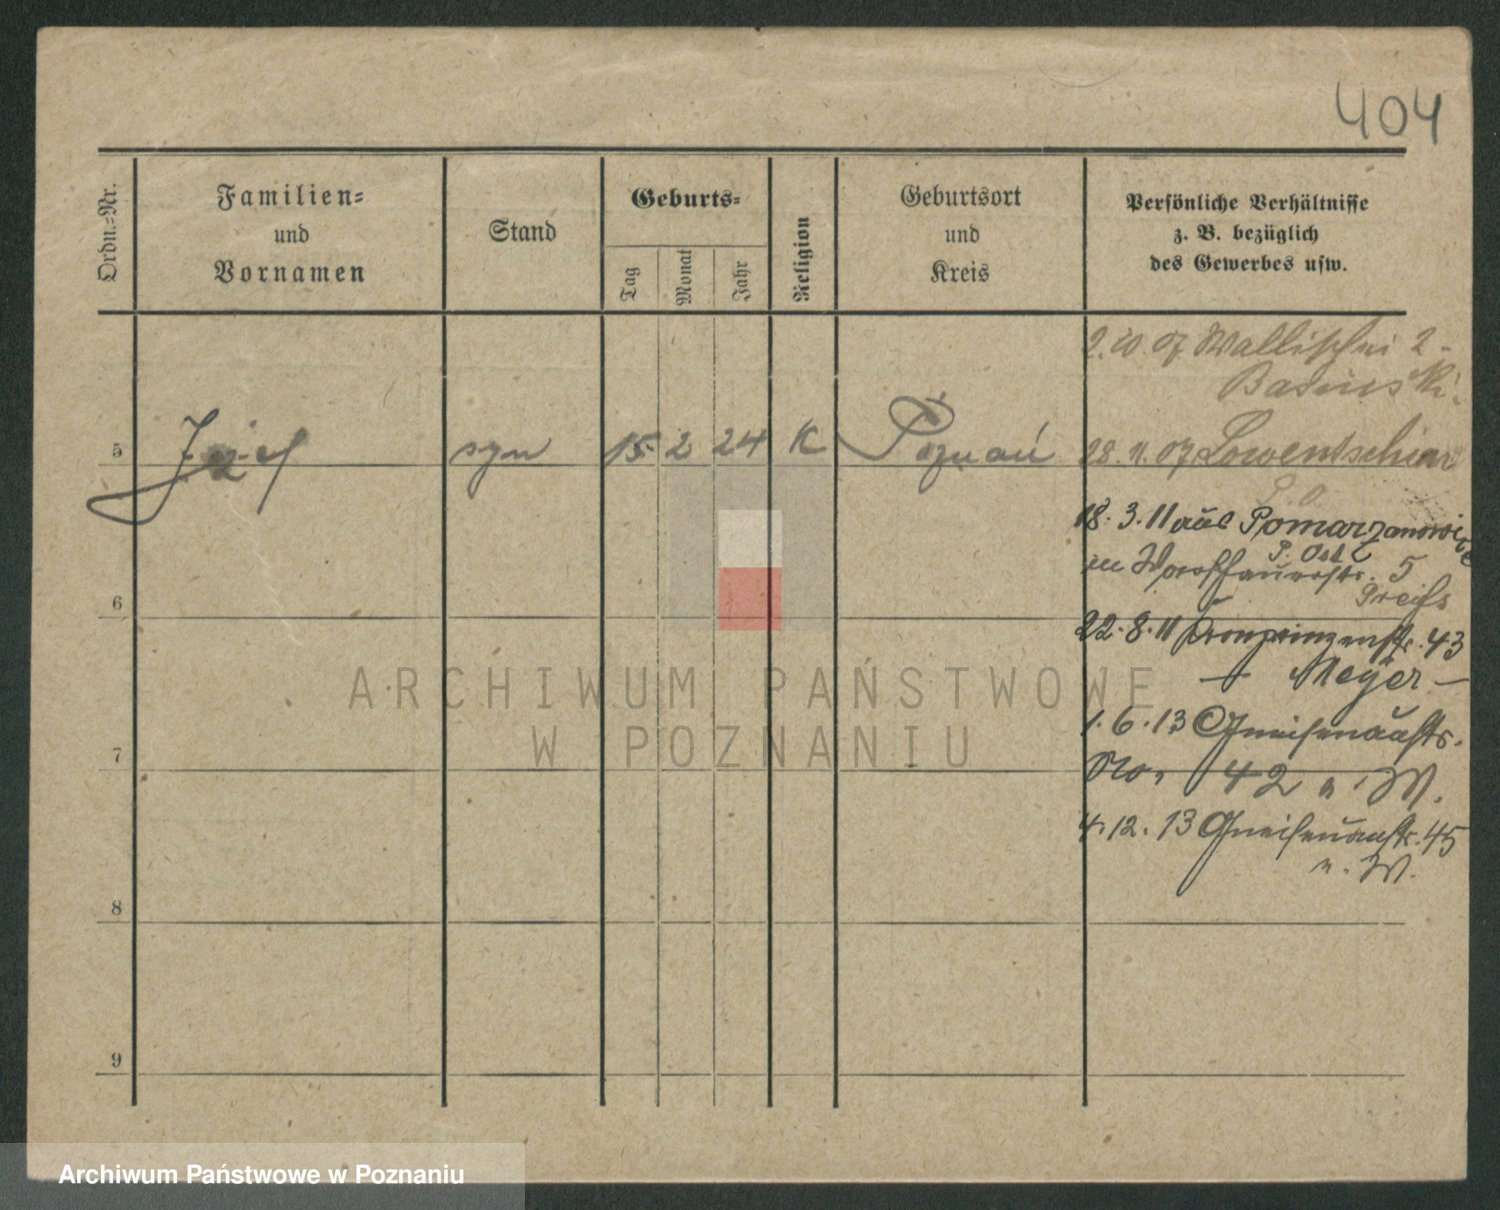 404
Ordn.-Nr.
Familien-
und
Vornamen
Stand
Geburts-
Tag
Monat
Jahr
Religion
Geburtsort
und
Kreis
Persönliche Verhältnisse
z. B. bezüglich
des Gewerbes usw.
2.10.07 Wallischei 2-
5 Józef syn 15 2 24 K Poznań
28.11.07 Lowentschin
18.3.11 aus Pomarzanowitz
P. Ost
in 5
22.8.11 Kronprinzenstr. 43
- Meyer -
6
1.6.13 Gneisenaustr.
No. 42 n. W.
7
4.12.13 Gneisenaustr. 45
n. W.
8
9
ARCHIWUM PAŃSTWOWE
W POZNANIU
Archiwum Państwowe w Poznaniu